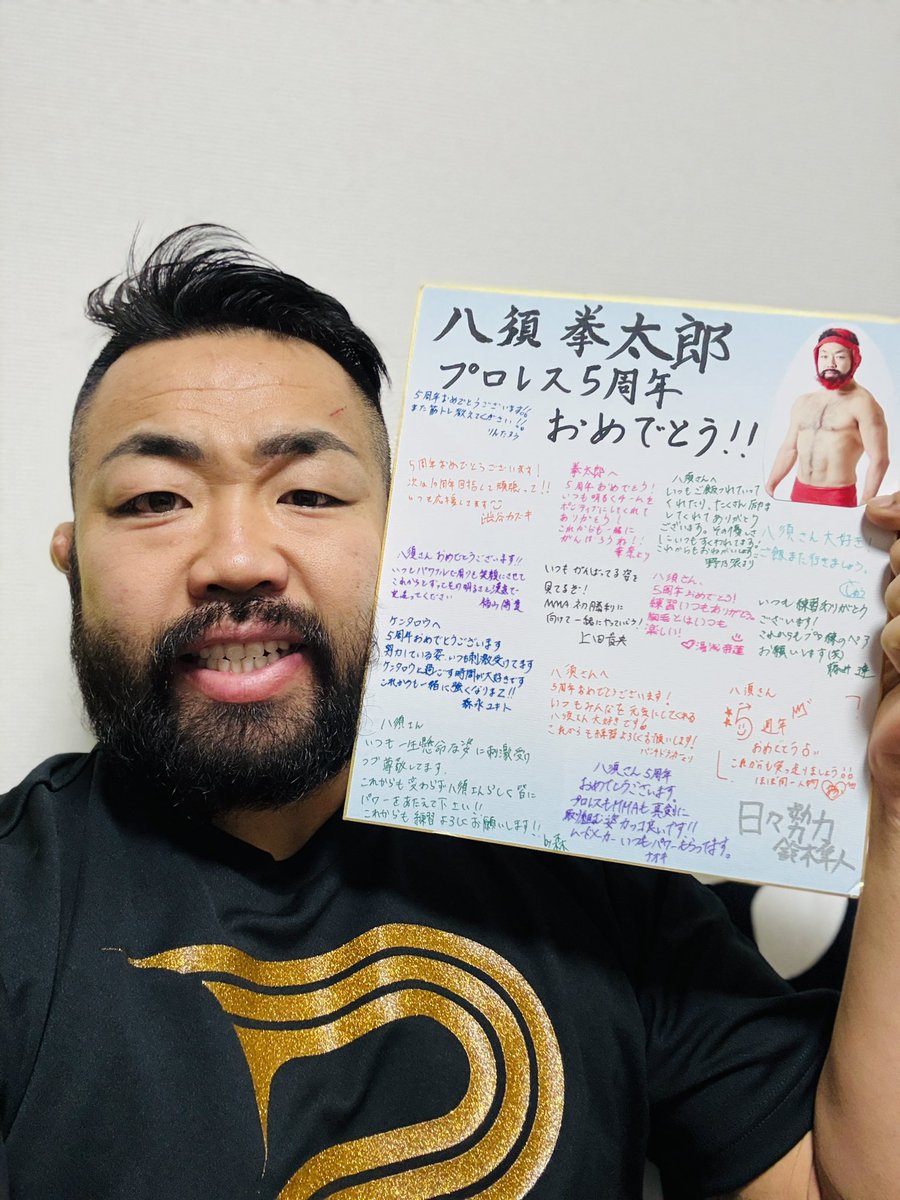 八須 拳太郎
プロレス5周年
おめでとう!!
5周年おめでとうございます!!
また筋トレ教えてください!!
りんたろう
5周年おめでとうございます!
次は10周年目指して頑張って!!
いつも応援してます
渋谷カズキ
拳太郎へ
5周年おめでとう!
いつも明るくチームを
ポジティブにしてくれて
ありがとう!
これからも一緒に
がんばろうね!!
八須さんへ
いつもご飯つれていって
くれたり、たくさん
してくれてありがとう
ございます。その優しさ
にいつもすくわれてます。
これからもおねがいします。
八須さん大好き!
ご飯また行きましょう。
八須さん おめでとうございます!!
いつもパワフルで周りも笑顔にさせて
これからもずっとその明るさと
ください
いつもがんばってる姿を
見てるぞ!
MMA初勝利に
向けて一緒にやっていこう!
八須さん、
5周年おめでとう!
練習いつもありがとう。
いつも
楽しい!
いつも練習ありがとう
ございます!
これからもプロ練のパフ
お願いします(笑)
藤井
ケンタロウへ
5周年おめでとうございます
努力している姿、いつも刺激受けてます
ケンタロウと過ごす時間が大好きです
これからも一緒に強くなりましょ!!
森永ユキト
八須さんへ
5周年おめでとうございます!
いつもみんなを元気にしてくれる
八須さん大好きです
これからも練習よろしくお願いします!
八須さん
5周年
おめでとう
これからも突っ走りましょう
ほぼ同一人物
八須さん
いつも一生懸命な姿に刺激受け
つつ尊敬してます。
これからも変わらず八須さんらしく皆に
パワーをあたえて下さい!!
これからも練習よろしくお願いします!!
by森
八須さん5周年
おめでとうございます
プロレスもMMAも真剣に
取り組む姿カッコ良いです!!
いつもパワーもらってます。
ナオキ
日々努力
鈴木隼人